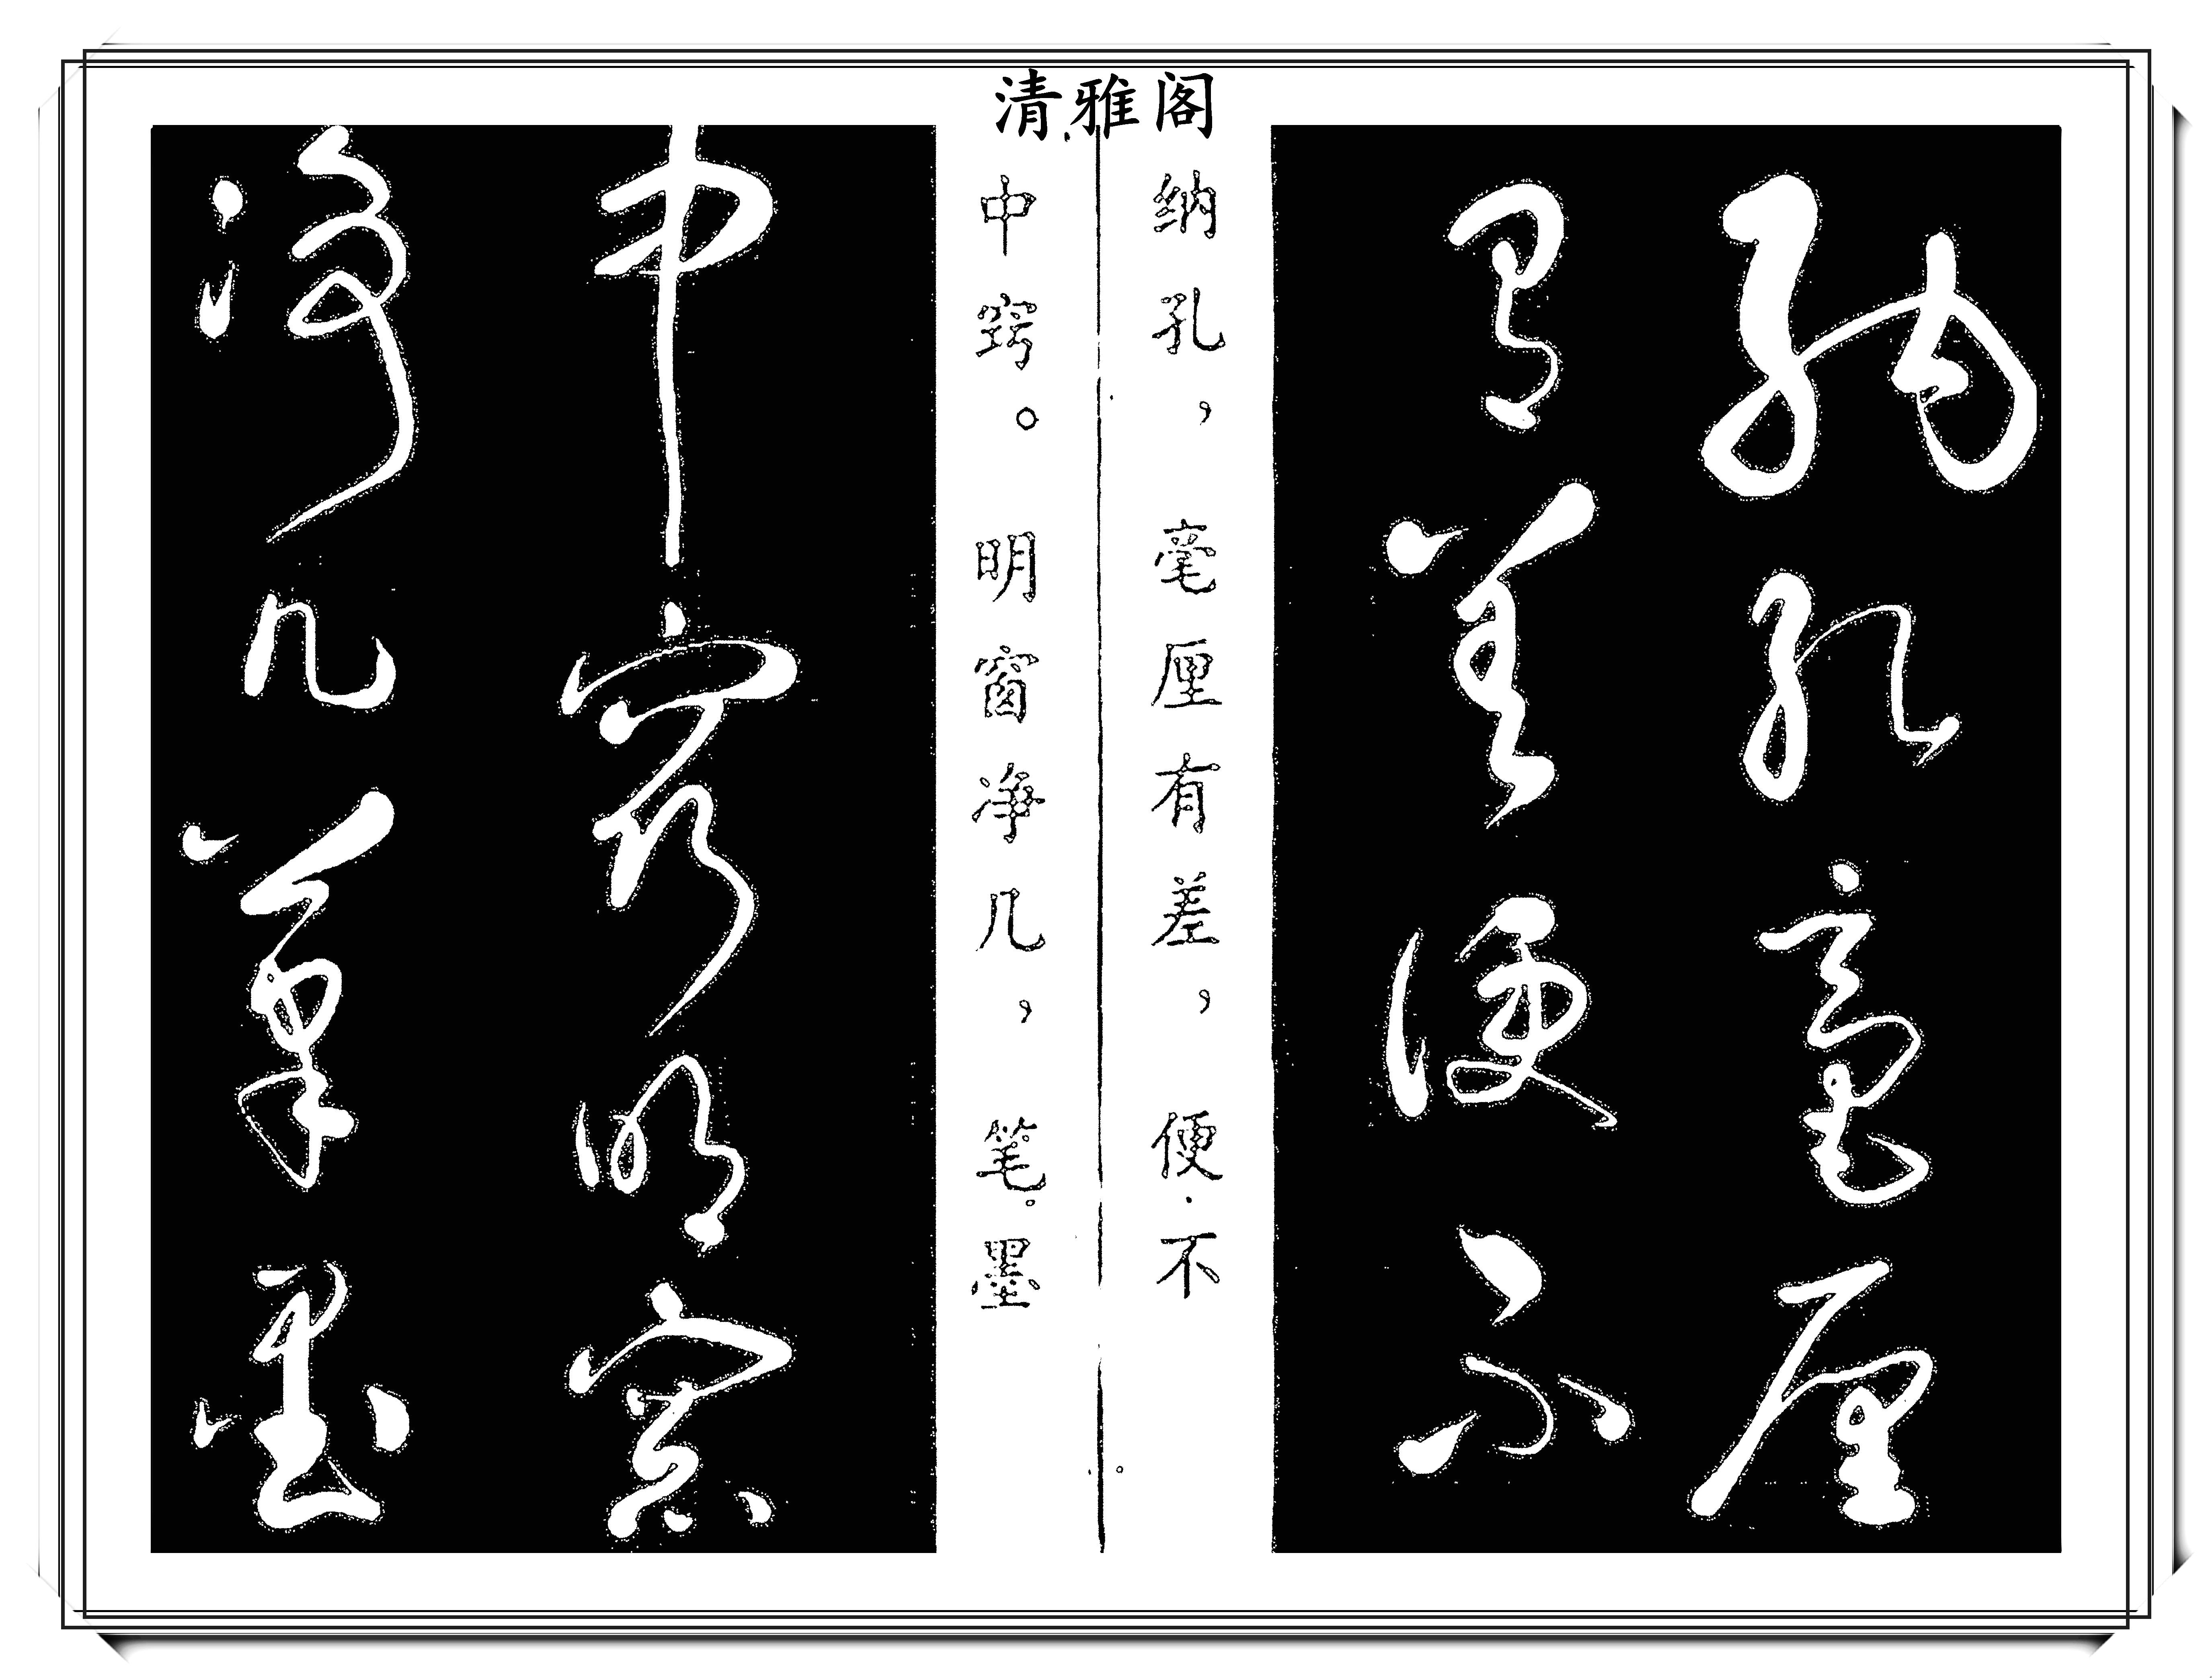 清雅阁
纳孔毫厘
有差便不
纳孔，毫厘有差，便不
中窍。明窗净几，笔墨
中窍明窗
净几笔墨